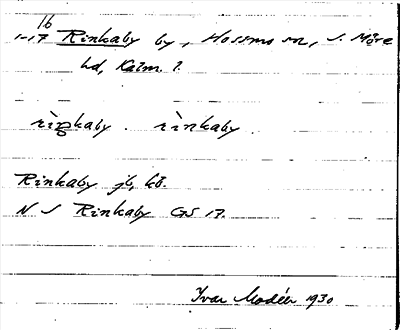 16
1-17 Rinkaby by, Hossmo sn, S. Möre
hd, Kalm. l.
rìŋkaby. rìnkaby.
Rinkaby jb, kb.
N S Rinkaby GS 17.
Ivar Modéer 1930